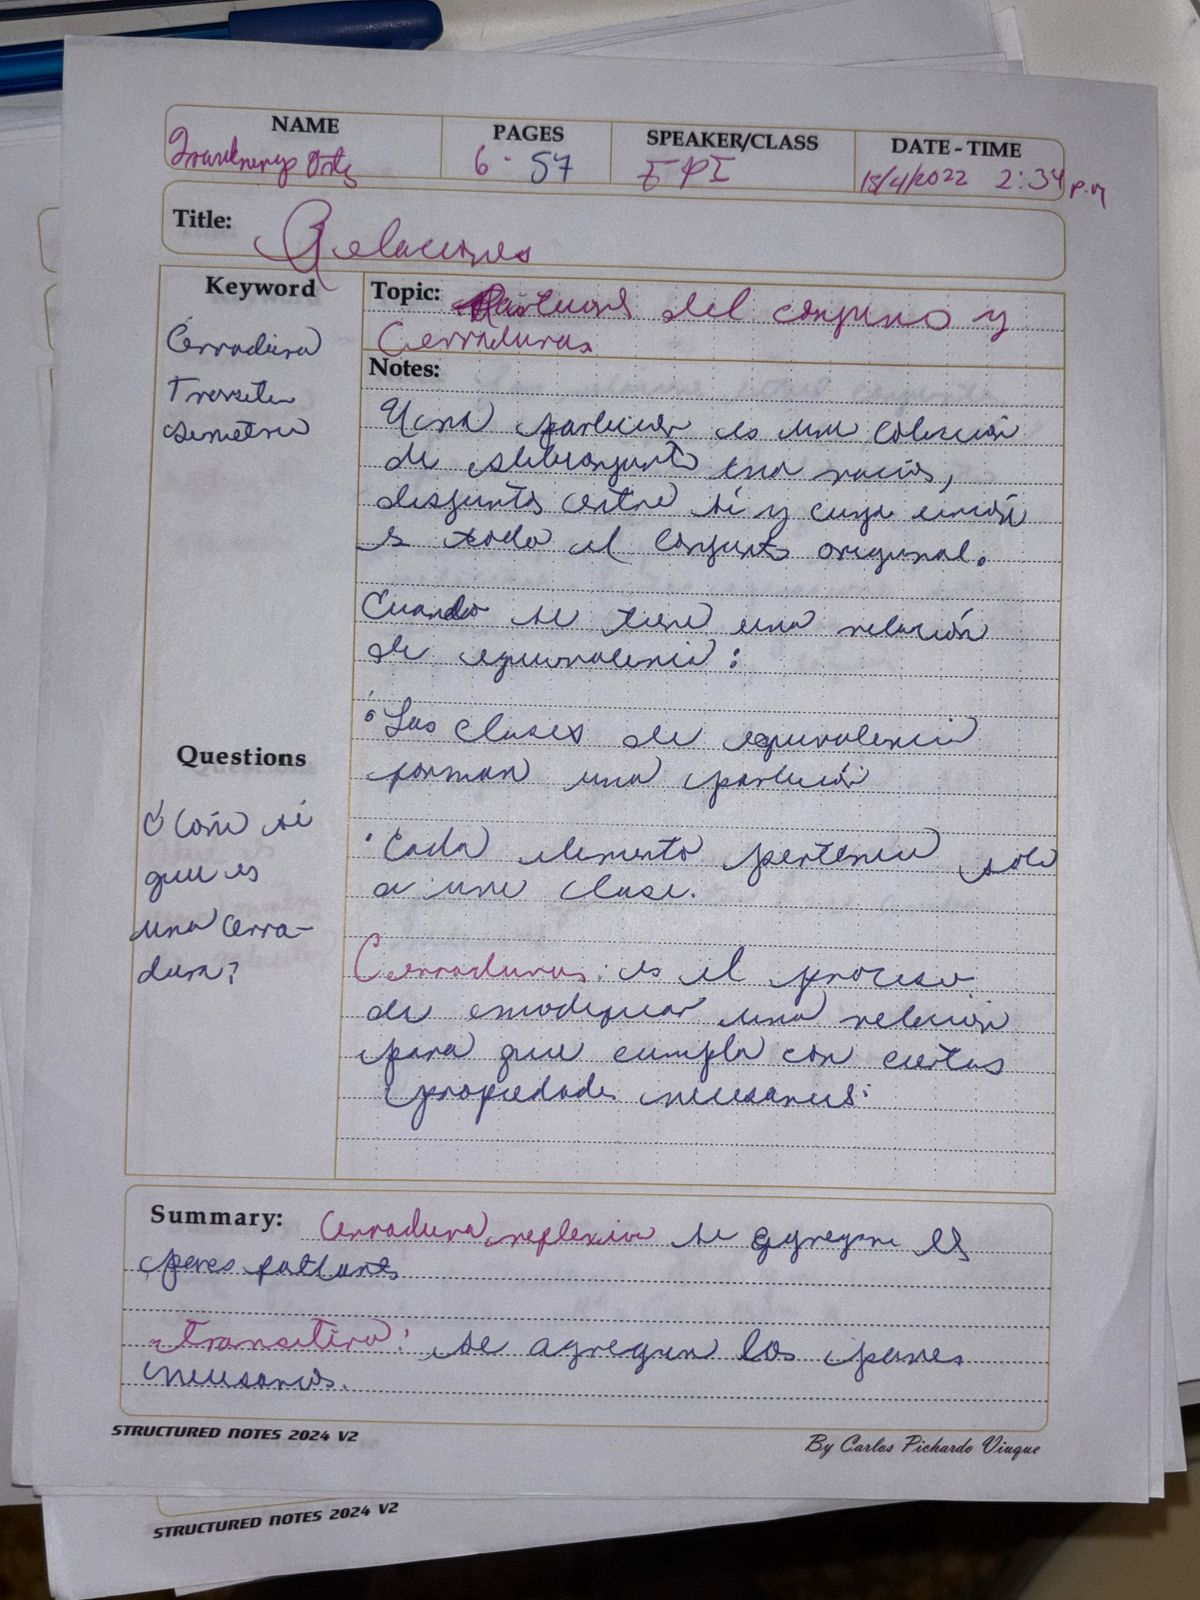 NAME
PAGES
SPEAKER/CLASS
DATE-TIME
6-57
EPI
15/4/2022 2:34 p.m
Title: Relaciones
Keyword
Cerradura
Simetria
Topic: del conjunto y
Cerraduras
Notes:
Una partición es una colección
de subconjuntos vacíos,
disjuntos entre sí y cuya unión
es todo el conjunto original.
Cuando se tiene una relación
de equivalencia:
• Las clases de equivalencia
forman una partición
• Cada elemento pertenece solo
a una clase.
Questions
sé
que es
una cerra-
dura?
Cerraduras: es el proceso
de modificar una relación
para que cumpla con ciertas
propiedades necesarias:
Summary: Cerradura reflexiva se agregan los
pares faltantes
transitiva: se agregan los pares
necesarios.
STRUCTURED NOTES 2024 V2
By Carlos Pichardo Viuque
STRUCTURED NOTES 2024 V2